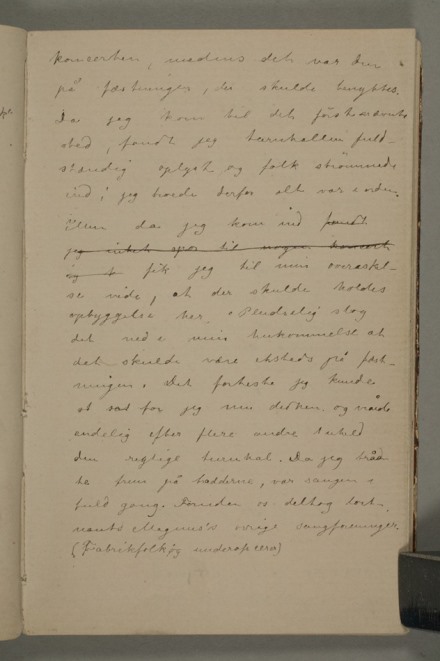 koncerten, medens det var den
på fæstningen, der skulde benyttes.
Da jeg kom til det førstnævnte
sted, fandt jeg turnhallen fuld-
stændig oplyst og folk strømmede
ind; jeg troede derfor alt var i orden.
Men da jeg kom ind fandt
jeg intet spor til nogen koncert
og fik jeg til min overraskel-
se vide, at der skulde holdes
opbyggelse her. Pludselig slog
det ned i min hukommelse at
det skulde være etsteds på fæst-
ningen. Det forteste jeg kunde
for jeg nu derhen og nåede
endelig efter flere andre uheld
den rigtige turnhal. Da jeg tråd-
te frem på bræderne, var sangen i
fuld gang. Foruden os deltog løit-
nants Magnus's øvrige sangforeninger.
(Fabrikfolk og underofficerer)